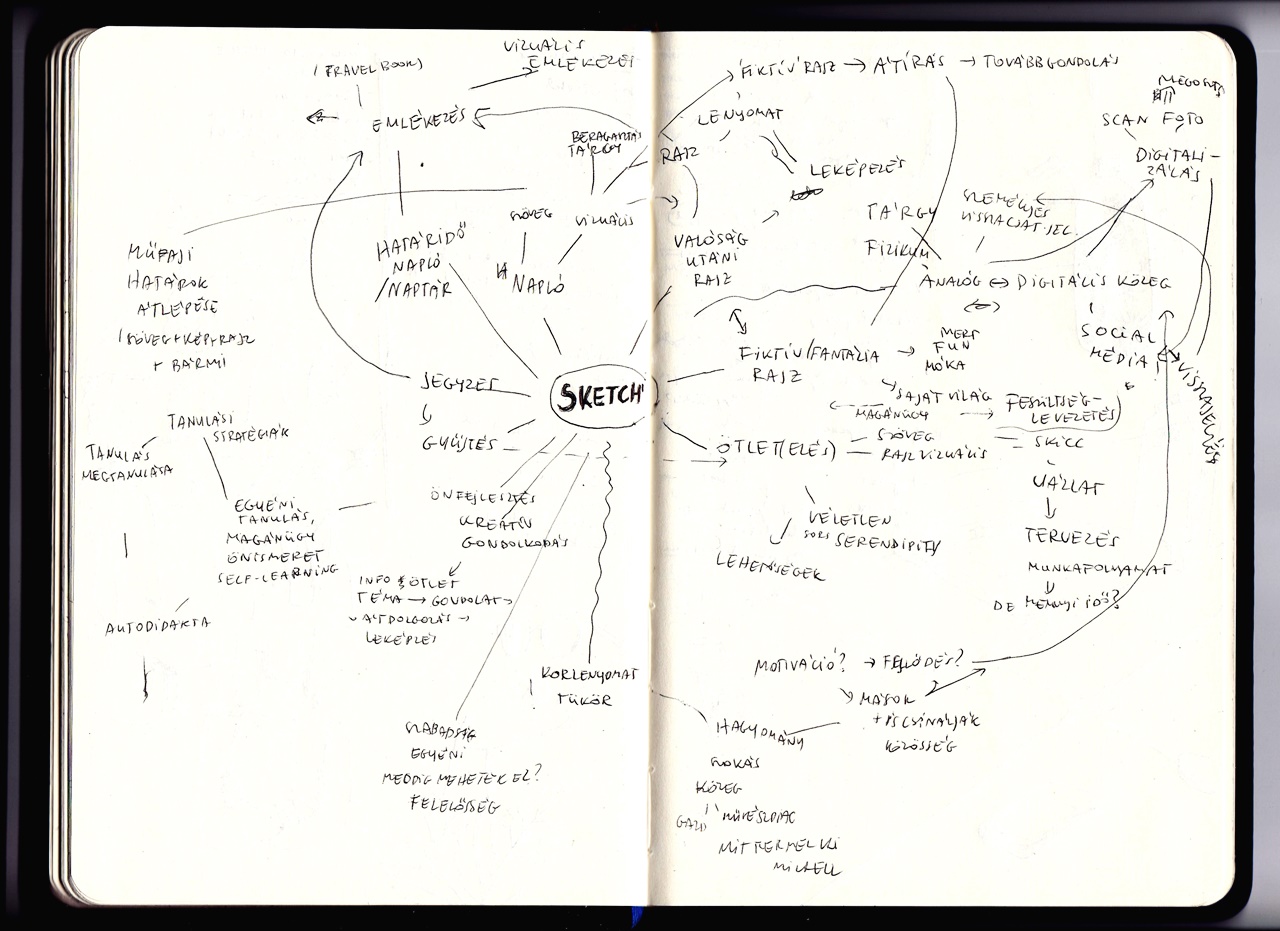 (TRAVEL BOOK)
VIZUÁLIS
EMLÉKEZET
EMLÉKEZÉS
BERAGASZTÁS
TÁRGY
SZÖVEG
VIZUÁLIS
NAPLÓ
HATÁRIDŐ
NAPLÓ
/NAPTÁR
MŰFAJI
HATÁROK
ÁTLÉPÉSE
/SZÖVEG+KÉP+RAJZ
+ BÁRMI
JEGYZET
GYŰJTÉS
SKETCH
TANULÁSI
STRATÉGIÁK
TANULÁS
MEGTANULÁSA
EGYÉNI
TANULÁS,
MAGÁNÜGY
ÖNISMERET
SELF-LEARNING
AUTODIDAKTA
ÖNFEJLESZTÉS
KREATÍV
GONDOLKODÁS
INFO & ÖTLET
TÉMA → GONDOLAT →
ÁTDOLGOZÁS →
LEKÉPZÉS
KORLENYOMAT
TÜKÖR
SZABADSÁG
EGYÉNI
MEDDIG MEHETEK EL?
FELELŐSSÉG
FIKTÍV RAJZ → ÁTÍRÁS → TOVÁBBGONDOLÁS
LENYOMAT
RAJZ
LEKÉPEZÉS
VALÓSÁG
UTÁNI
RAJZ
TÁRGY
FIZIKUM
SZEMÉLYES
ANALÓG ⇔ DIGITÁLIS KÖZEG
SCAN FOTO
DIGITALI-
ZÁLÁS
SOCIAL
MÉDIA
VISSZAJELZÉS
FIKTÍV/FANTÁZIA
RAJZ
MERT
FUN
MÓKA
SAJÁT VILÁG
MAGÁNÜGY
FESZÜLTSÉG-
LEVEZETÉS
ÖTLET(ELÉS)
SZÖVEG
RAJZ VIZUÁLIS
SKICC
VÁZLAT
TERVEZÉS
MUNKAFOLYAMAT
DE MENNYI IDŐ?
VÉLETLEN
SORS SERENDIPITY
LEHETŐSÉGEK
MOTIVÁCIÓ? → FEJLŐDÉS?
MÁSOK
+ IS CSINÁLJÁK
KÖZÖSSÉG
HAGYOMÁNY
SZOKÁS
KÖZEG
MŰVÉSZPIAC
MIT TERMEL KI
MI KELL